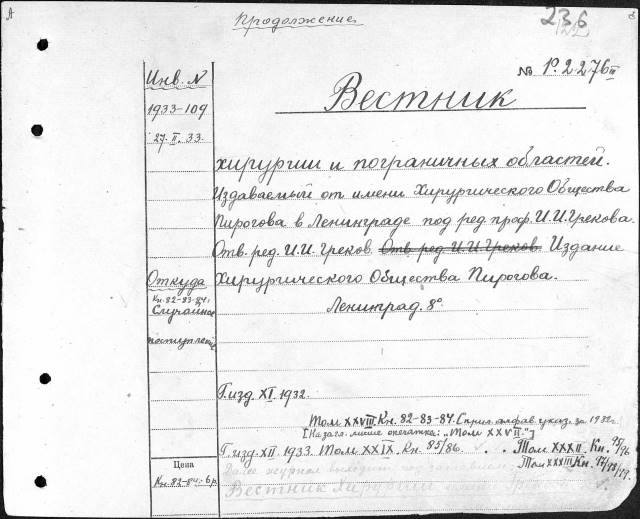 Продолжение
236
122
Инв. N
№ Р. 2276 III
1933-109
27. II. 33.
Вестник
хирургии и пограничных областей.
Издаваемый от имени Хирургического Общества
Пирогова в Ленинграде под ред. проф. И.И. Грекова.
Отв. ред. И.И. Греков. Отв. ред. И.И. Греков. Издание
Хирургического Общества Пирогова.
Откуда
Кн. 82-83-84:
Случайное
поступление
Ленинград. 8°
Г. изд. XI. 1932.
Том XXVIII. Кн. 82-83-84. С прил. алфав. указ. за 1932г.
[На загл. листе опечатка: "Том XXVII."]
Г. изд. XII. 1933. Том XXIX. Кн. 85/86. Том XXXII. Кн. 95/96
Том XXXIII Кн. 97/98/99.
Цена
Кн. 82-84: 6 р.
Далее журнал выходит под заглавием:
Вестник Хирургии